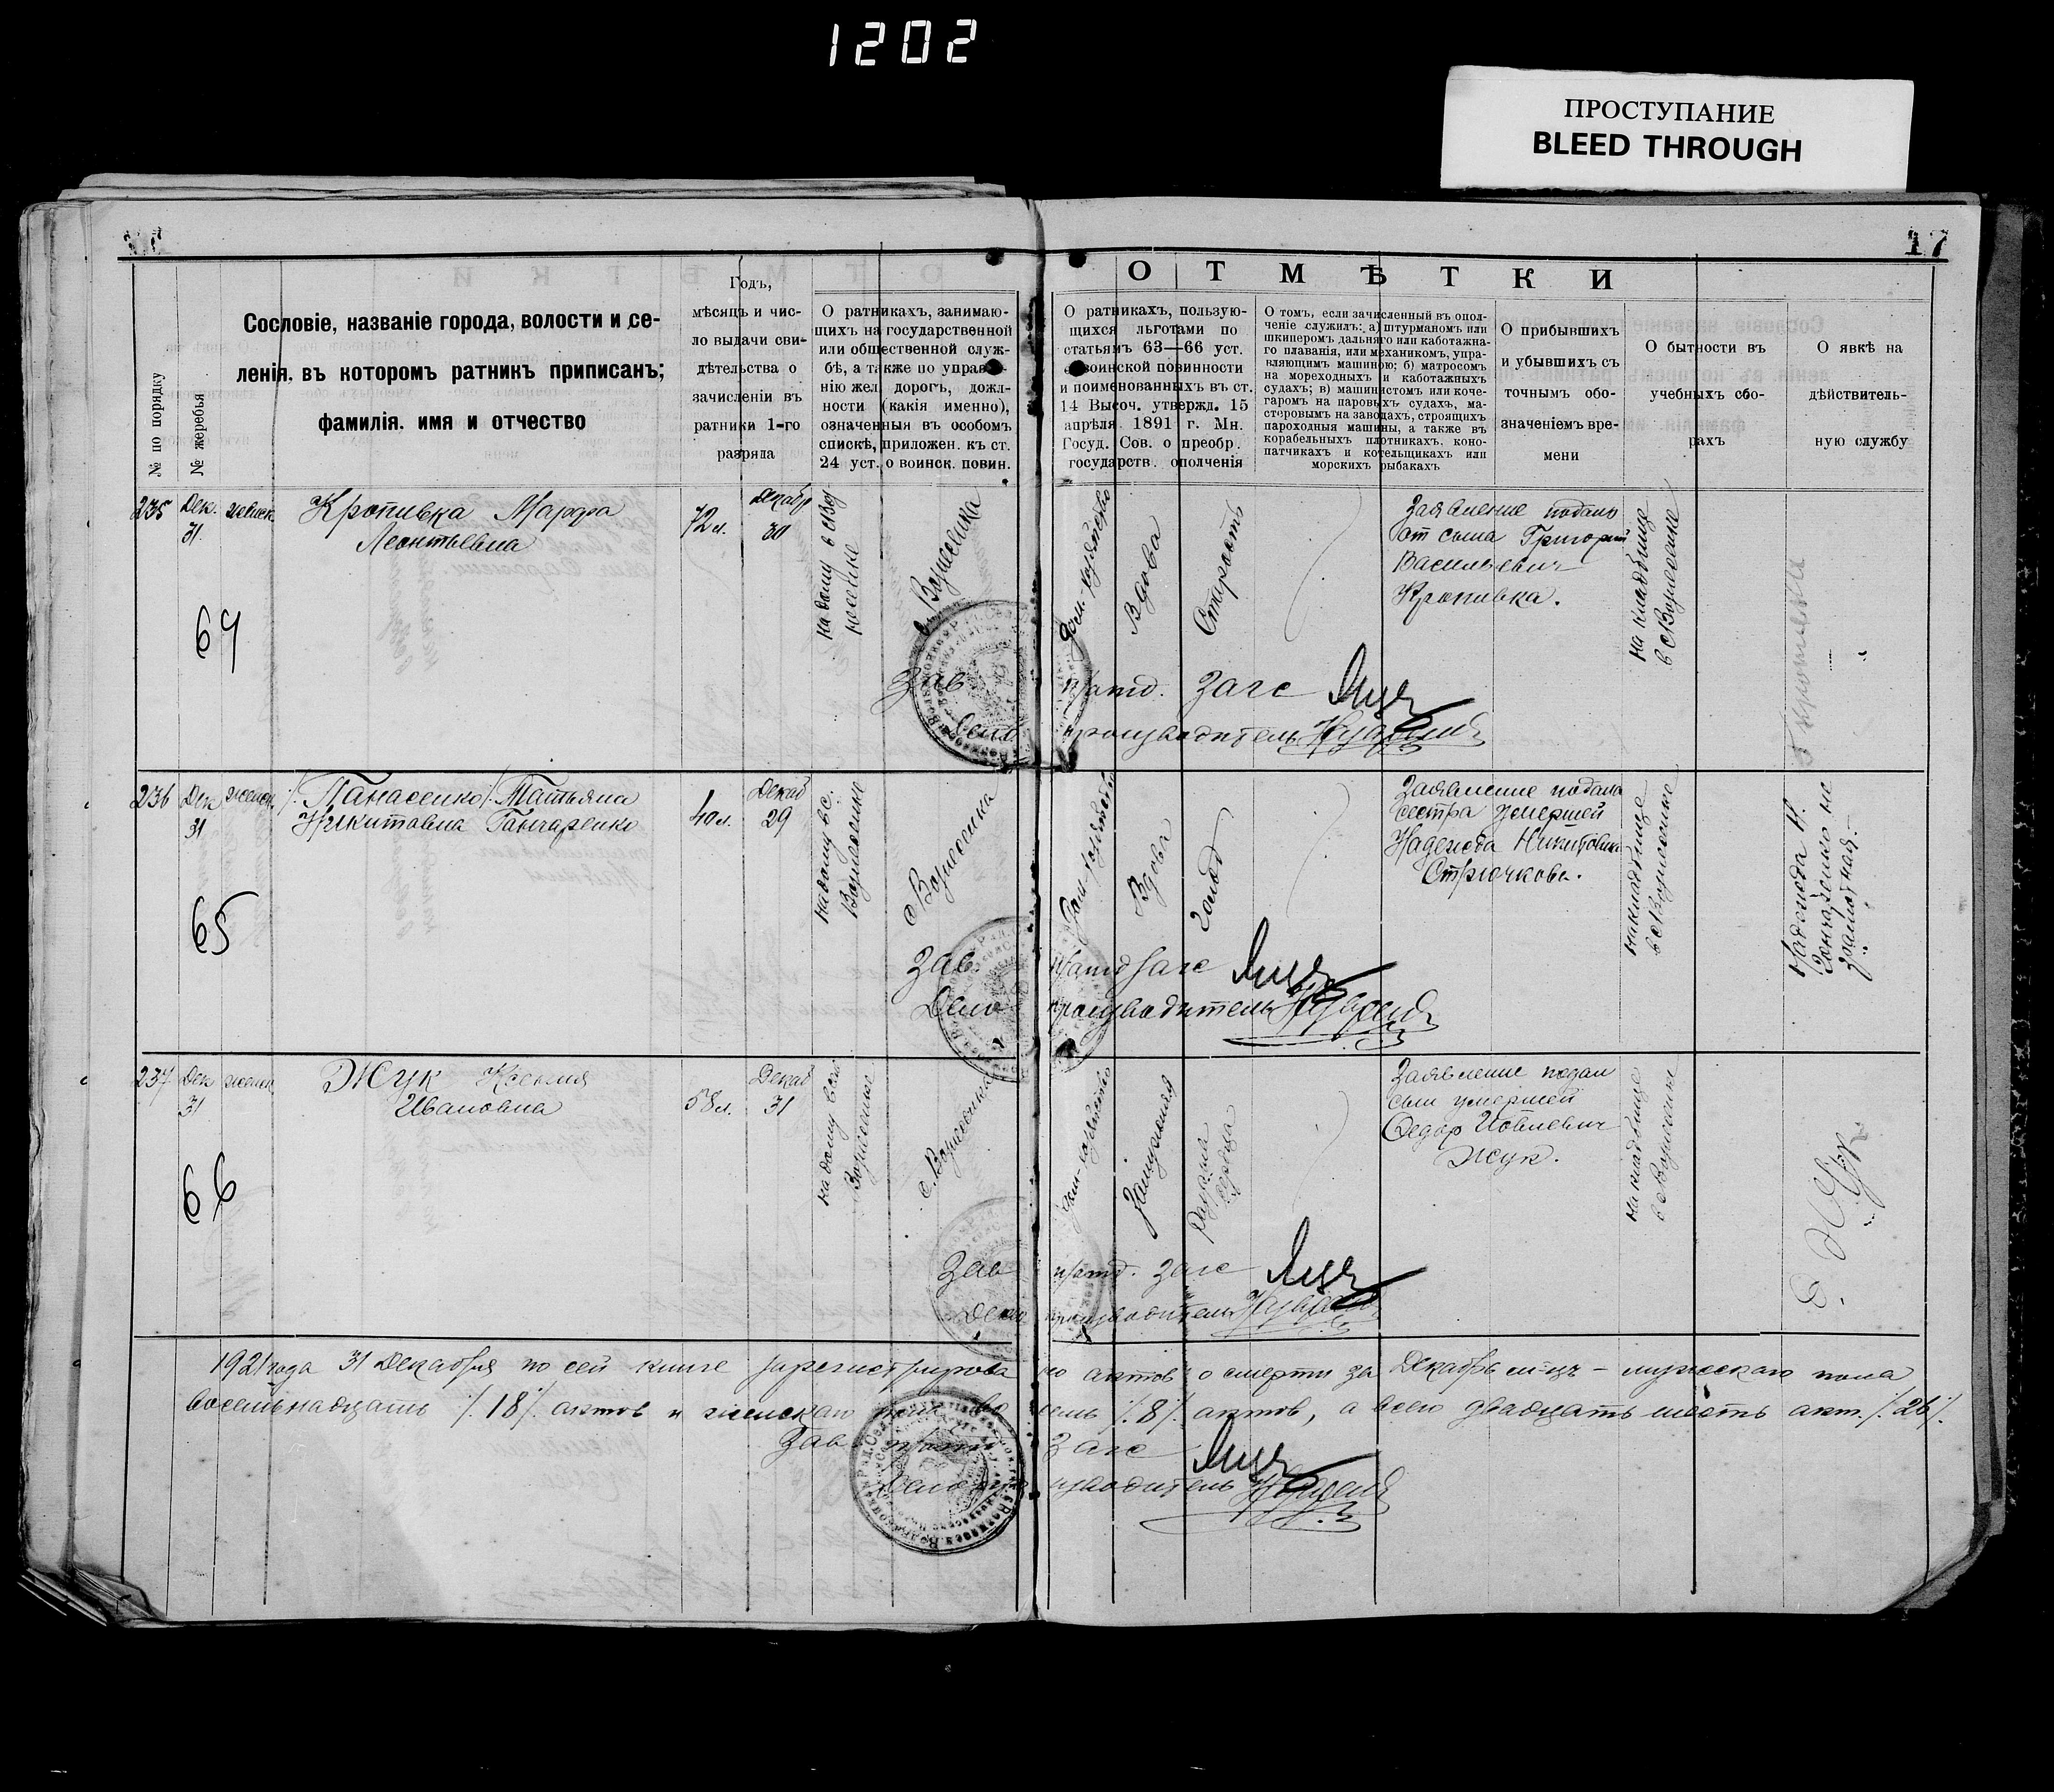 1202
ПРОСТУПАНИЕ
BLEED THROUGH
17
№ по порядку
№ жеребья
Сословіе, названіе города, волости и се-
ленія, въ которомъ ратникъ приписанъ;
фамилія, имя и отчество
Годъ,
мѣсяцъ и чис-
ло выдачи сви-
дѣтельства о
зачисленіи въ
ратники 1-го
разряда
О ратникахъ, занимаю-
щихъ на государственной
или общественной служ-
бѣ, а также по управле-
нію жел. дорогъ, долж-
ности (какія именно),
означенныя въ особомъ
спискѣ, приложен. къ ст.
24 уст. о воинск. повин.
О Т М Ѣ Т К И
О ратникахъ, пользую-
щихся льготами по
статьямъ 63—66 уст.
о воинской повинности
и поименованныхъ въ ст.
14 Высоч. утвержд. 15
апрѣля 1891 г. Мн.
Госуд. Сов. о преобр.
государств. ополченія
О томъ, если зачисленный въ опол-
ченіе служилъ: а) штурманомъ или
шкиперомъ дальняго или каботажна-
го плаванія, или механикомъ, упра-
вляющимъ машиною; б) матросомъ
на мореходныхъ и каботажныхъ
судахъ; в) машинистомъ или коче-
гаромъ на паровыхъ судахъ, ма-
стеровымъ на заводахъ, строящихъ
пароходныя машины, а также въ
корабельныхъ плотникахъ, коно-
патчикахъ и котельщикахъ или
морскихъ рыбакахъ
О прибывшихъ
и убывшихъ съ
точнымъ обо-
значеніемъ вре-
мени
О бытности въ
учебныхъ сбо-
рахъ
О явкѣ на
дѣйствитель-
ную службу
235 Дек. женск. Кропивка Марфа 72 л. Декабр
31. Леонтьевна 30
на дому в с Воз
несенке
с. Вознесенка
Вдова
Старость
Заявление подано
от сына Григорий
Васильевич
Кропивка.
на кладбище
в с Вознесенке
64
Зав п/отд. Загс
Дело производитель
236 Дек женск. /. Панасенко ./ Татьяна 40 л. Декаб
31 Никитовна Ганчаренко 29
на дому в с.
Вознесенке
с Вознесенка
Вдова
голод
Заявление подала
сестра умершей
Надежда Никитовна
Стрючкова.
на кладбище
в с Вознесенке
Надежда Н.
Гончаренко не
грамотная.
65
Зав. п/отд Загс
Дело производитель
237 Дек женск Жук Ксения 58 л. Декаб
31 Ивановна 31
на дому в с.
Вознесенке
с. Вознесенка
Замужняя
сердца
Заявление подал
сын умершей
Федор Иовлевич
Жук.
на кладбище
в с Вознесенке
66
Зав п/отд. Загс
Дело производитель
1921 года 31 Декабря по сей книге зарегистрирова но актов о смерти за Декабрь м-цъ – мужскаго пола
Восемьнадцать /. 18 ./ актов и женскаго пола во семь /. 8 ./ актов, а всего двадцать шесть акт. /. 26 ./
Зав п/отд Загс
Делопроизводитель